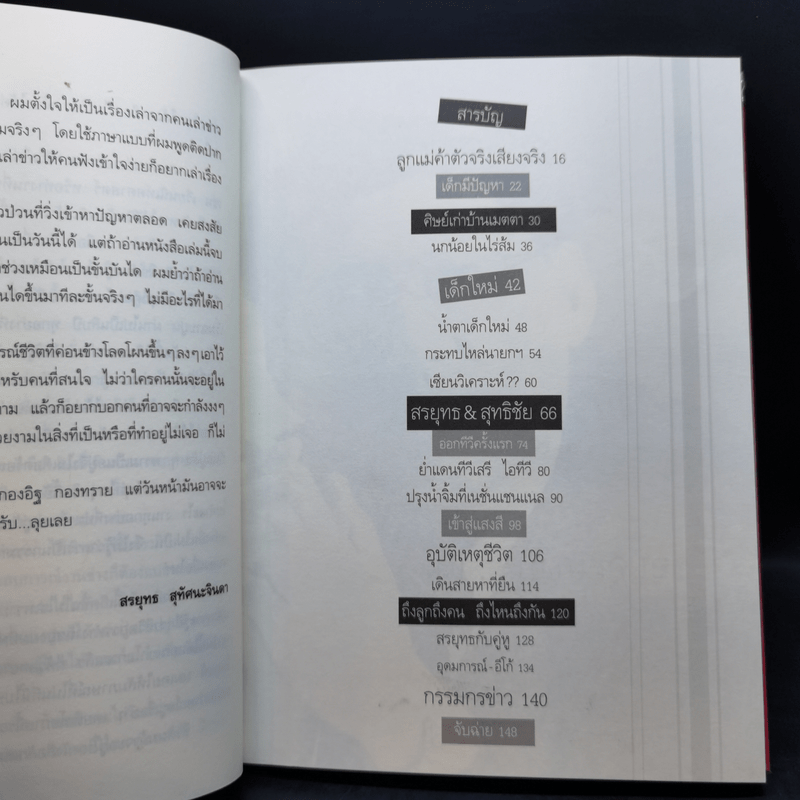 ผมตั้งใจให้เป็นเรื่องเล่าจากคนเล่าข่าว
มจริงๆ โดยใช้ภาษาแบบที่ผมพูดติดปาก
เล่าข่าวให้คนฟังเข้าใจง่ายก็อยากเล่าเรื่อง
วป่วนที่วิ่งเข้าหาปัญหาตลอด เคยสงสัย
นเป็นวันนี้ได้ แต่ถ้าอ่านหนังสือเล่มนี้จบ
ช่วงเหมือนเป็นขั้นบันได ผมย้ำว่าถ้าอ่าน
นไดขึ้นมาทีละขั้นจริงๆ ไม่มีอะไรที่ได้มา
รณ์ชีวิตที่ค่อนข้างโลดโผนขึ้นๆลงๆเอาไว้
หรับคนที่สนใจ ไม่ว่าใครคนนั้นจะอยู่ใน
าม แล้วก็อยากบอกคนที่อาจจะกำลังงงๆ
วยงามในสิ่งที่เป็นหรือที่ทำอยู่ไม่เจอ ก็ไม่
กองอิฐ กองทราย แต่วันหน้ามันอาจจะ
รับ...ลุยเลย
สรยุทธ สุทัศนะจินดา
สารบัญ
ลูกแม่ค้าตัวจริงเสียงจริง 16
เด็กมีปัญหา 22
ศิษย์เก่าบ้านเมตตา 30
นกน้อยในไร่ส้ม 36
เด็กใหม่ 42
น้ำตาเด็กใหม่ 48
กระทบไหล่นายกฯ 54
เซียนวิเคราะห์?? 60
สรยุทธ & สุทธิชัย 66
ออกทีวีครั้งแรก 74
ย่ำแดนทีวีเสรี ไอทีวี 80
ปรุงน้ำจิ้มที่เนชั่นแชนแนล 90
เข้าสู่แสงสี 98
อุบัติเหตุชีวิต 106
เดินสายหาที่ยืน 114
ถึงลูกถึงคน ถึงไหนถึงกัน 120
สรยุทธกับคู่หู 128
อุดมการณ์-อีโก้ 134
กรรมกรข่าว 140
จับฉ่าย 148